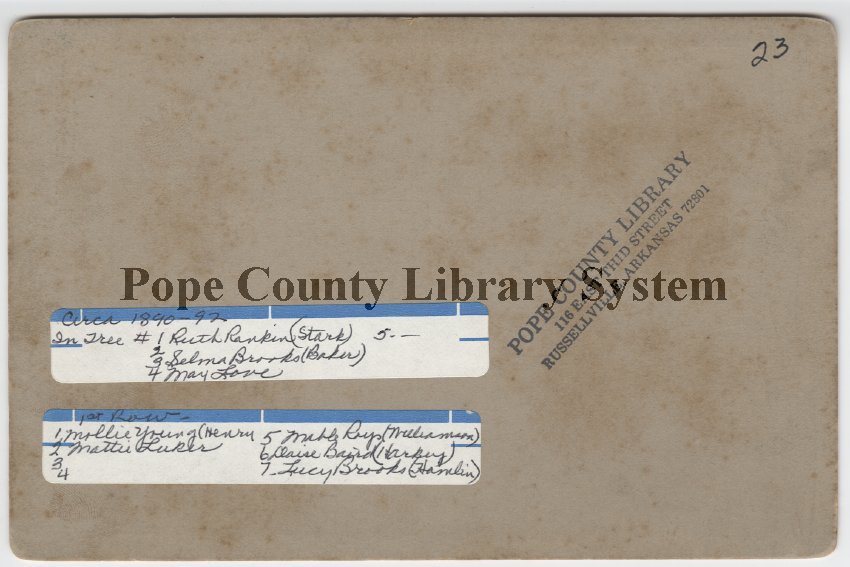 23
POPE COUNTY LIBRARY
116 EAST THID STREET
RUSSELLVILLE, ARKANSAS 72801
Pope County Library System
Circa 1890-92
In Tree # 1 Ruth Rankin (Stark) 5. —
2
3 Selma Brooks (Baker)
4 May Love
1st Row -
1 Mollie Young (Henry 5 Mable Roys (Williamson)
2 Mattie Luker 6 Daise Baird (Harkey)
3 7 Lucy Brooks (Hamlin)
4